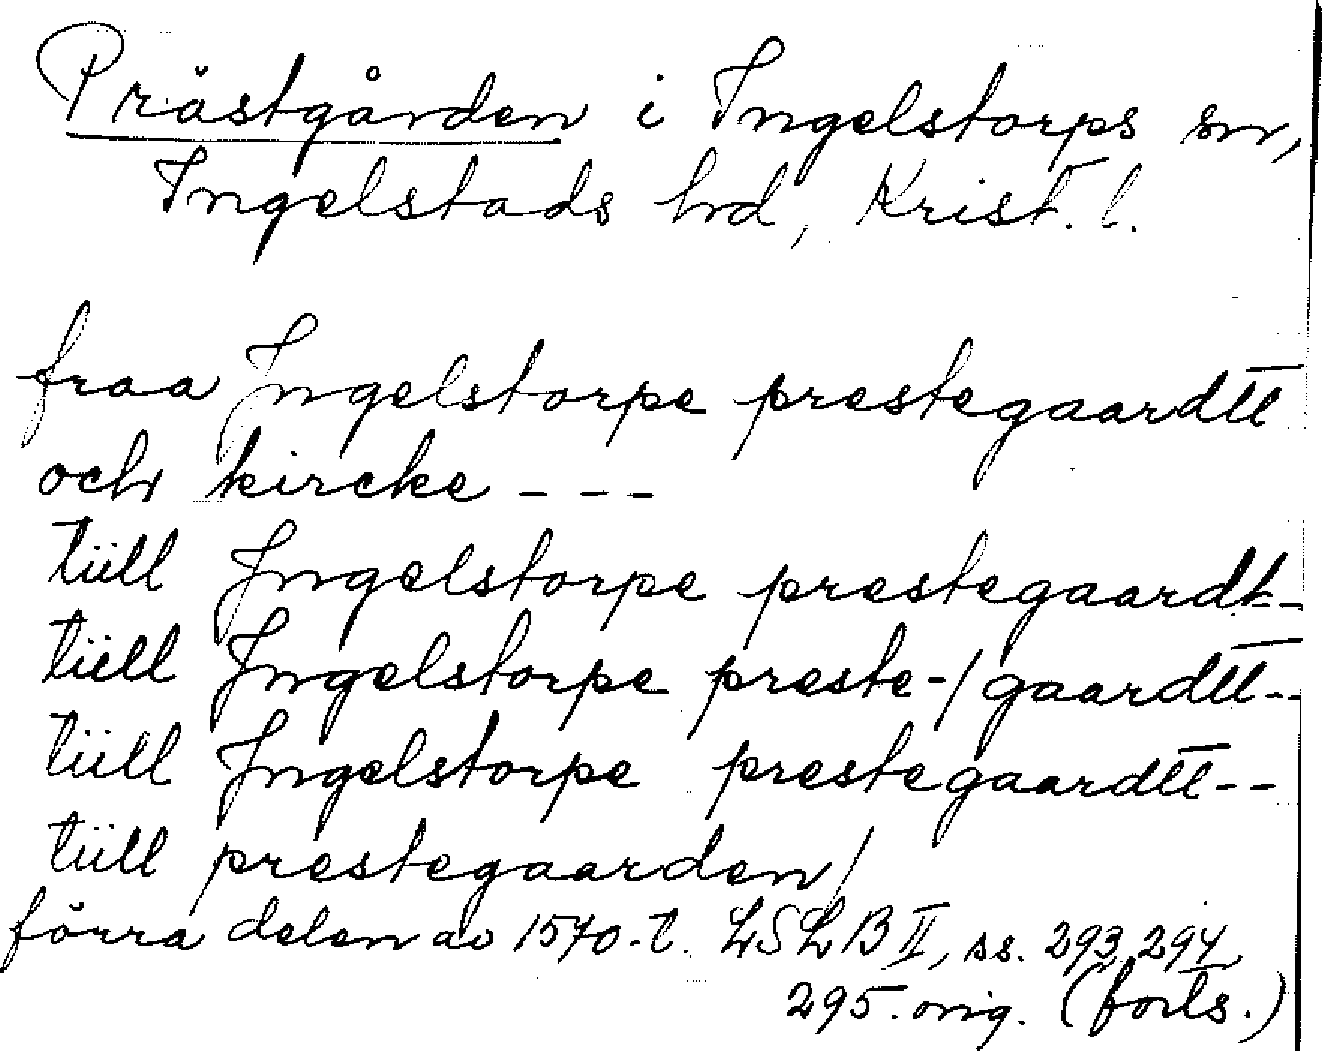 Prästgården i Ingelstorps sn,
Ingelstads hd, Krist. l.
fraa Ingelstorpe prestegaardtt
och kircke - - -
tüll Ingelstorpe prestegaardt -
tüll Ingelstorpe preste-/gaardtt--
tüll Ingelstorpe prestegaardtt--
tüll prestegaarden/
förra delen av 1570-t. LSLB II, ss. 293, 294,
295. orig. (forts.)